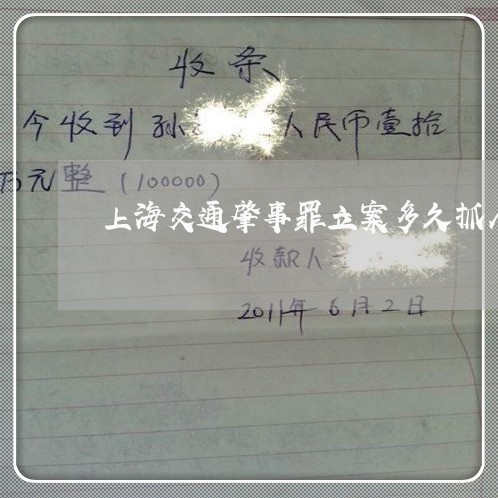 收条
今收到孙人民币壹拾
万元整（100000）
上海交通肇事罪立案多久抓
收款人
2011年6月2日